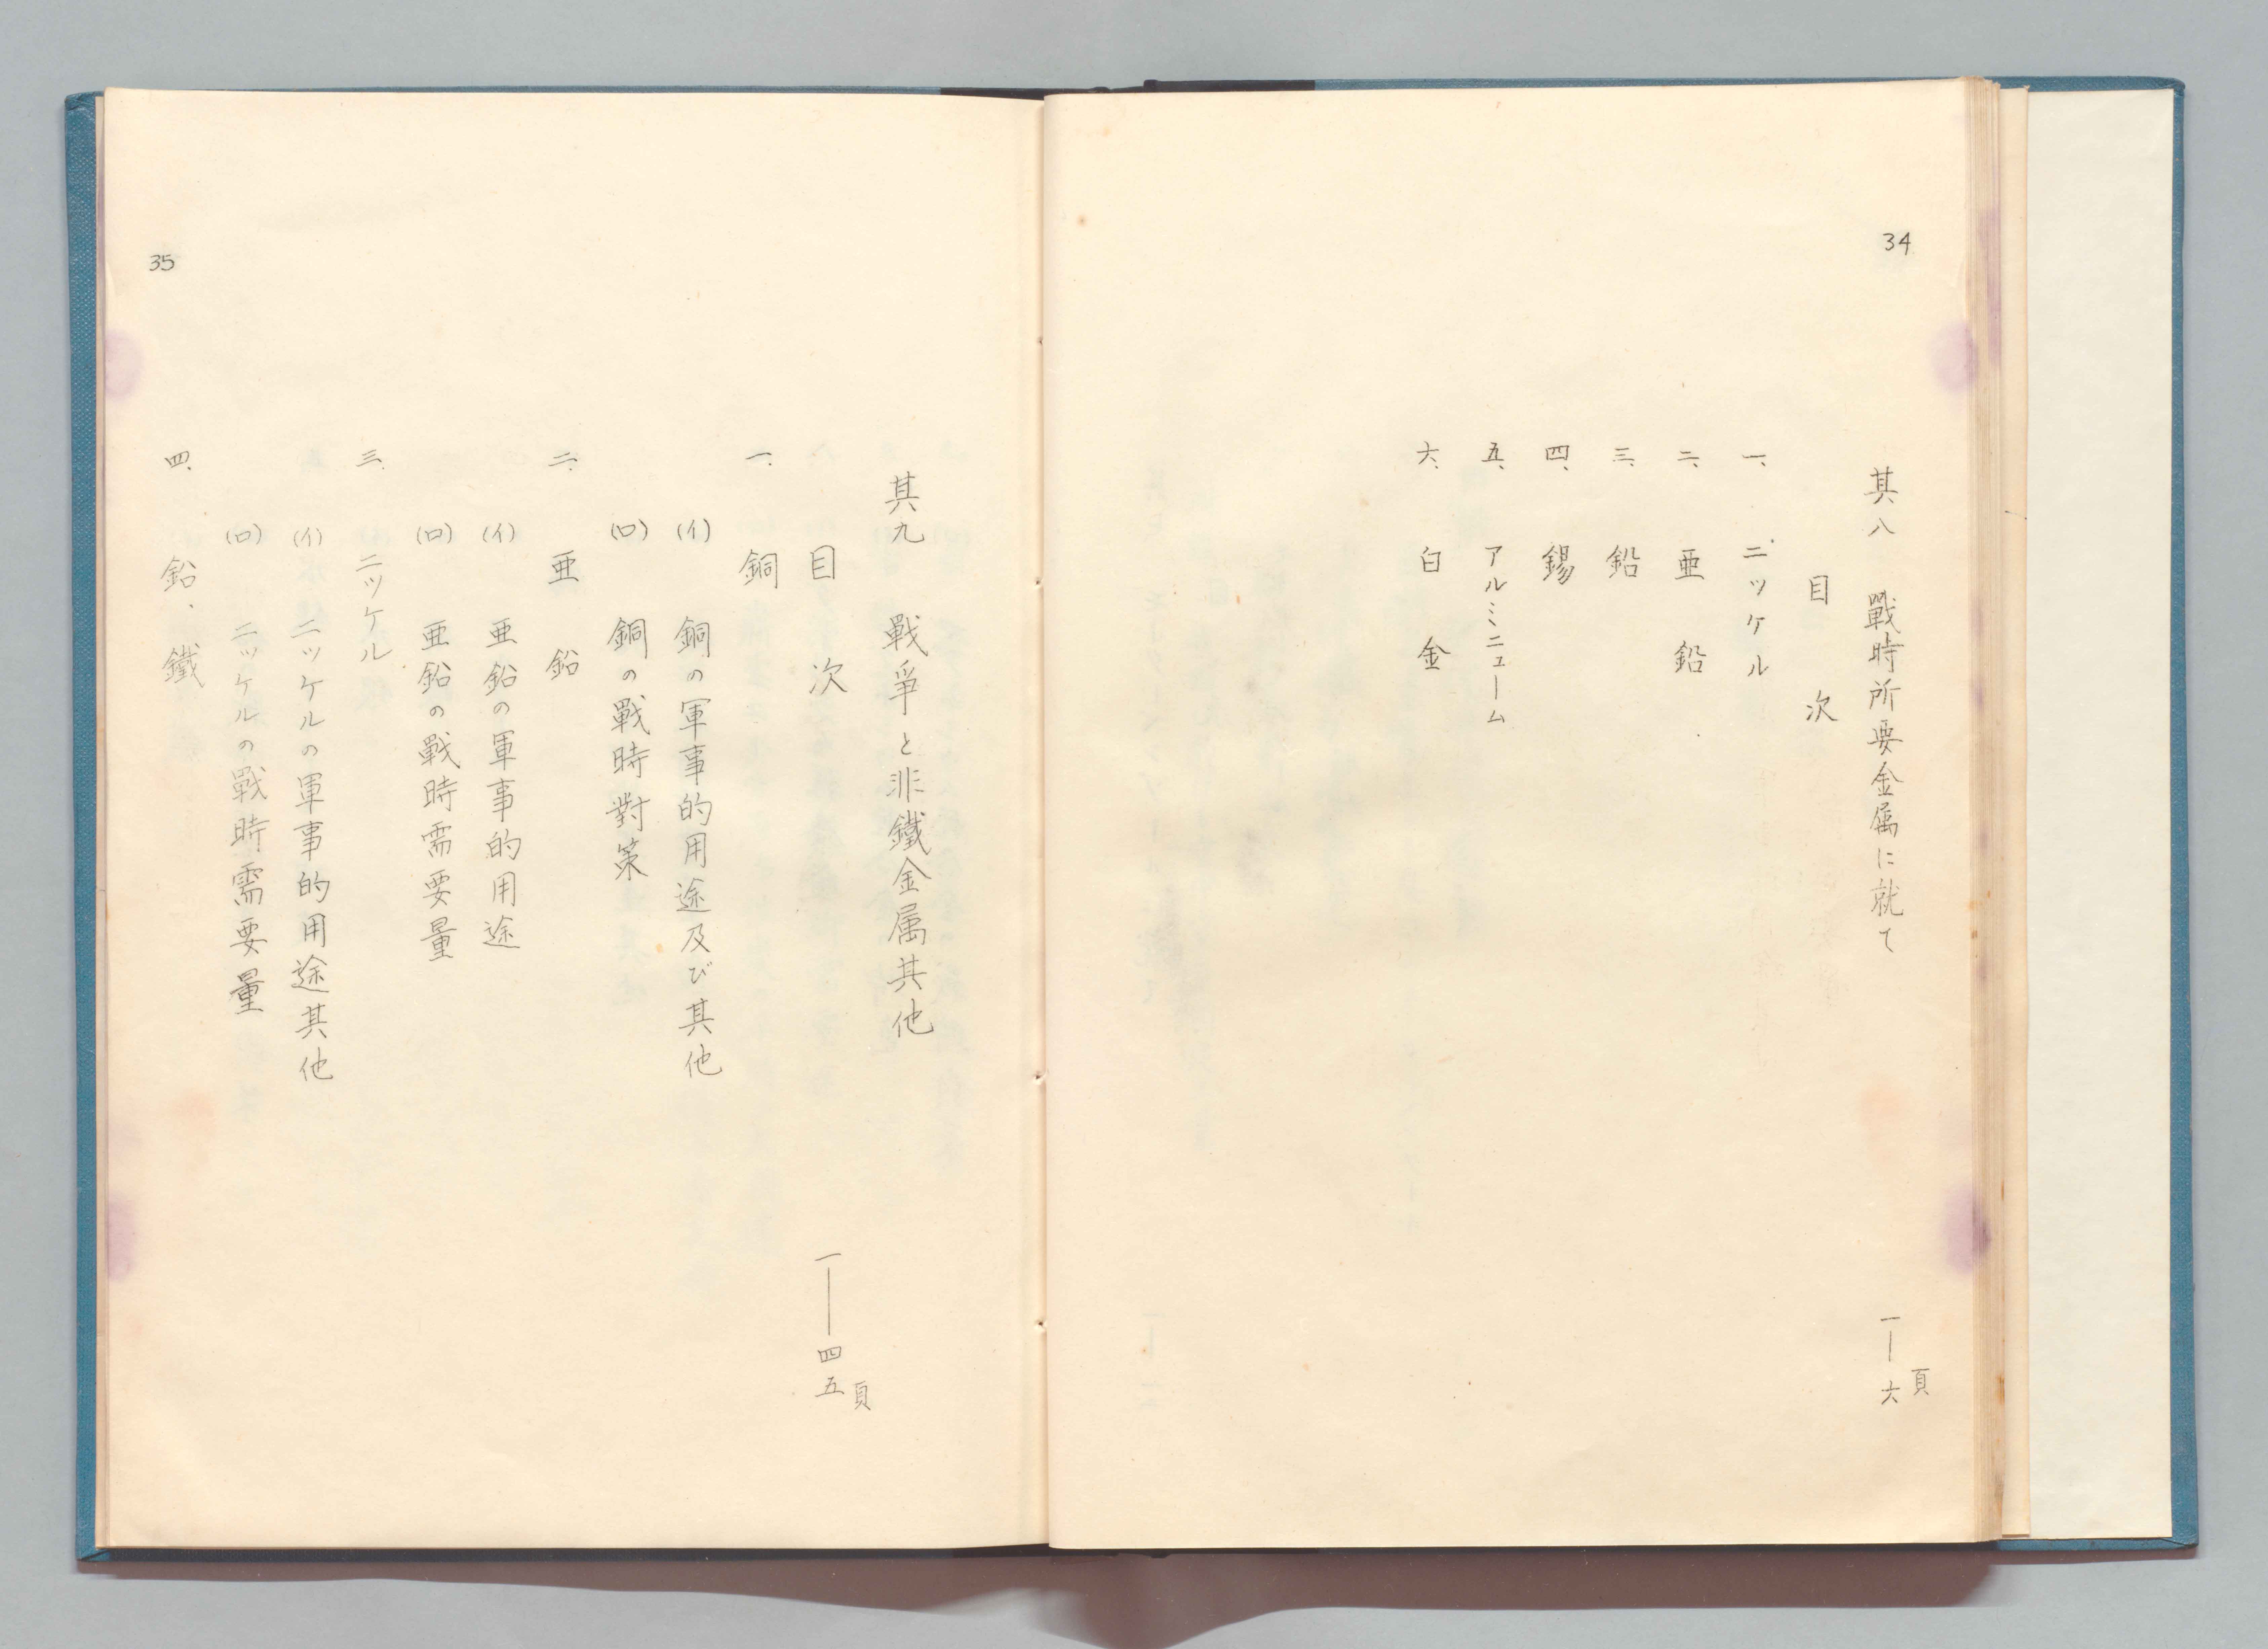 34
其八 戰時所要金属に就て
一―六頁
目次
一、ニッケル
二、亜鉛
三、鉛
四、錫
五、アルミニューム
六、白金
其九 戰爭と非鐵金属其他
目次
一――四五頁
一、銅
(イ) 銅の軍事的用途及び其他
(ロ) 銅の戰時對策
二、亜鉛
(イ) 亜鉛の軍事的用途
(ロ) 亜鉛の戰時需要量
三、ニッケル
(イ) ニッケルの軍事的用途其他
(ロ) ニッケルの戰時需要量
四、鉛、鐵
35